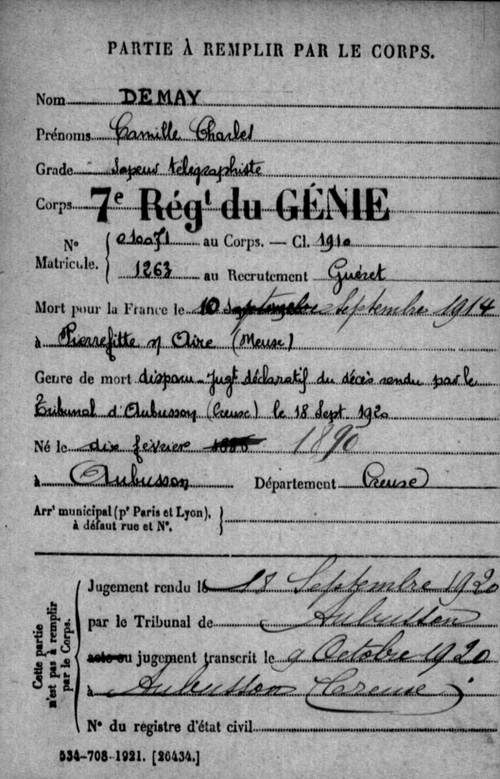 PARTIE À REMPLIR PAR LE CORPS.
Nom DEMAY
Prénoms Camille Charles
Grade Sapeur télégraphiste
Corps 7e Régt du GÉNIE
N° Matricule. { 01071 au Corps. — Cl. 1910
1263 au Recrutement Guéret
Mort pour la France le 10 septembre Septembre 1914
à Pierrefitte s/ Aire (Meuse)
Genre de mort disparu Jugt déclaratif du décès rendu par le
Tribunal d'Aubusson (Creuse) le 18 Sept. 1920
Né le dix février 1890
à Aubusson Département Creuse
Arrt municipal (pr Paris et Lyon), à défaut rue et N°. }
Cette partie n'est pas à remplir par le Corps. {
Jugement rendu le 18 Septembre 1920
par le Tribunal de Aubusson
acte ou jugement transcrit le 9 Octobre 1920
à Aubusson Creuse
N° du registre d'état civil
534-708-1921. [26434.]